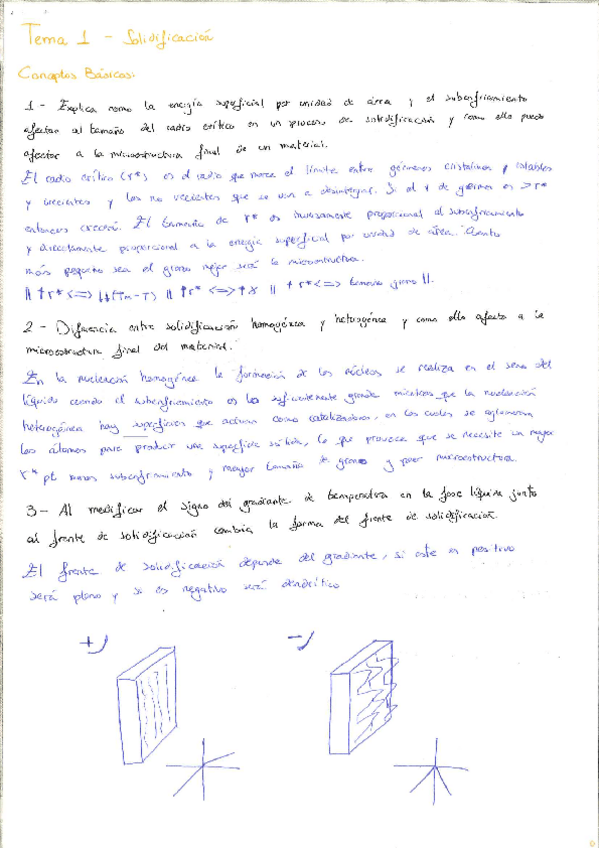 Tema 1 - Solidificación
Conceptos Básicos:
1 - Explica como la energía superficial por unidad de área y el subenfriamiento
afectan al tamaño del radio crítico en un proceso de solidificación y como ello puede
afectar a la microstructura final de un material.
El radio crítico (r*) es el radio que marca el límite entre gérmenes cristalinos estables
y crecientes y los no crecientes que se van a desintegrar. Si el r de germen es > r*
entonces crecerá. El tamaño de r* es inversamente proporcional al subenfriamiento
y directamente proporcional a la energía superficial por unidad de área. Cuanto
más pequeño sea el grano mejor será la microstructura.
|| ↑ r* <=> ↓(Tm-T) || ↑r* <=> ↑γ || ↑ r* <=> tamaño grano ||.
2 - Diferencia entre solidificación homogénea y heterogénea y como ello afecta a la
microstructura final del material.
En la nucleación homogénea la formación de los núcleos se realiza en el seno del
líquido cuando el subenfriamiento es lo suficientemente grande mientras que la nucleación
heterogénea hay superficies que actúan como catalizadores, en los cuales se aglomeran
los átomos para producir una superficie sólida, lo que provoca que se necesite un mayor
r* pt menos subenfriamiento y mayor tamaño de grano y peor microstructura.
3 - Al modificar el signo del gradiente de temperatura en la fase líquida junto
al frente de solidificación cambia la forma del frente de solidificación.
El frente de solidificación depende del gradiante, si este es positivo
será plano y si es negativo será dendrítico
+) -)